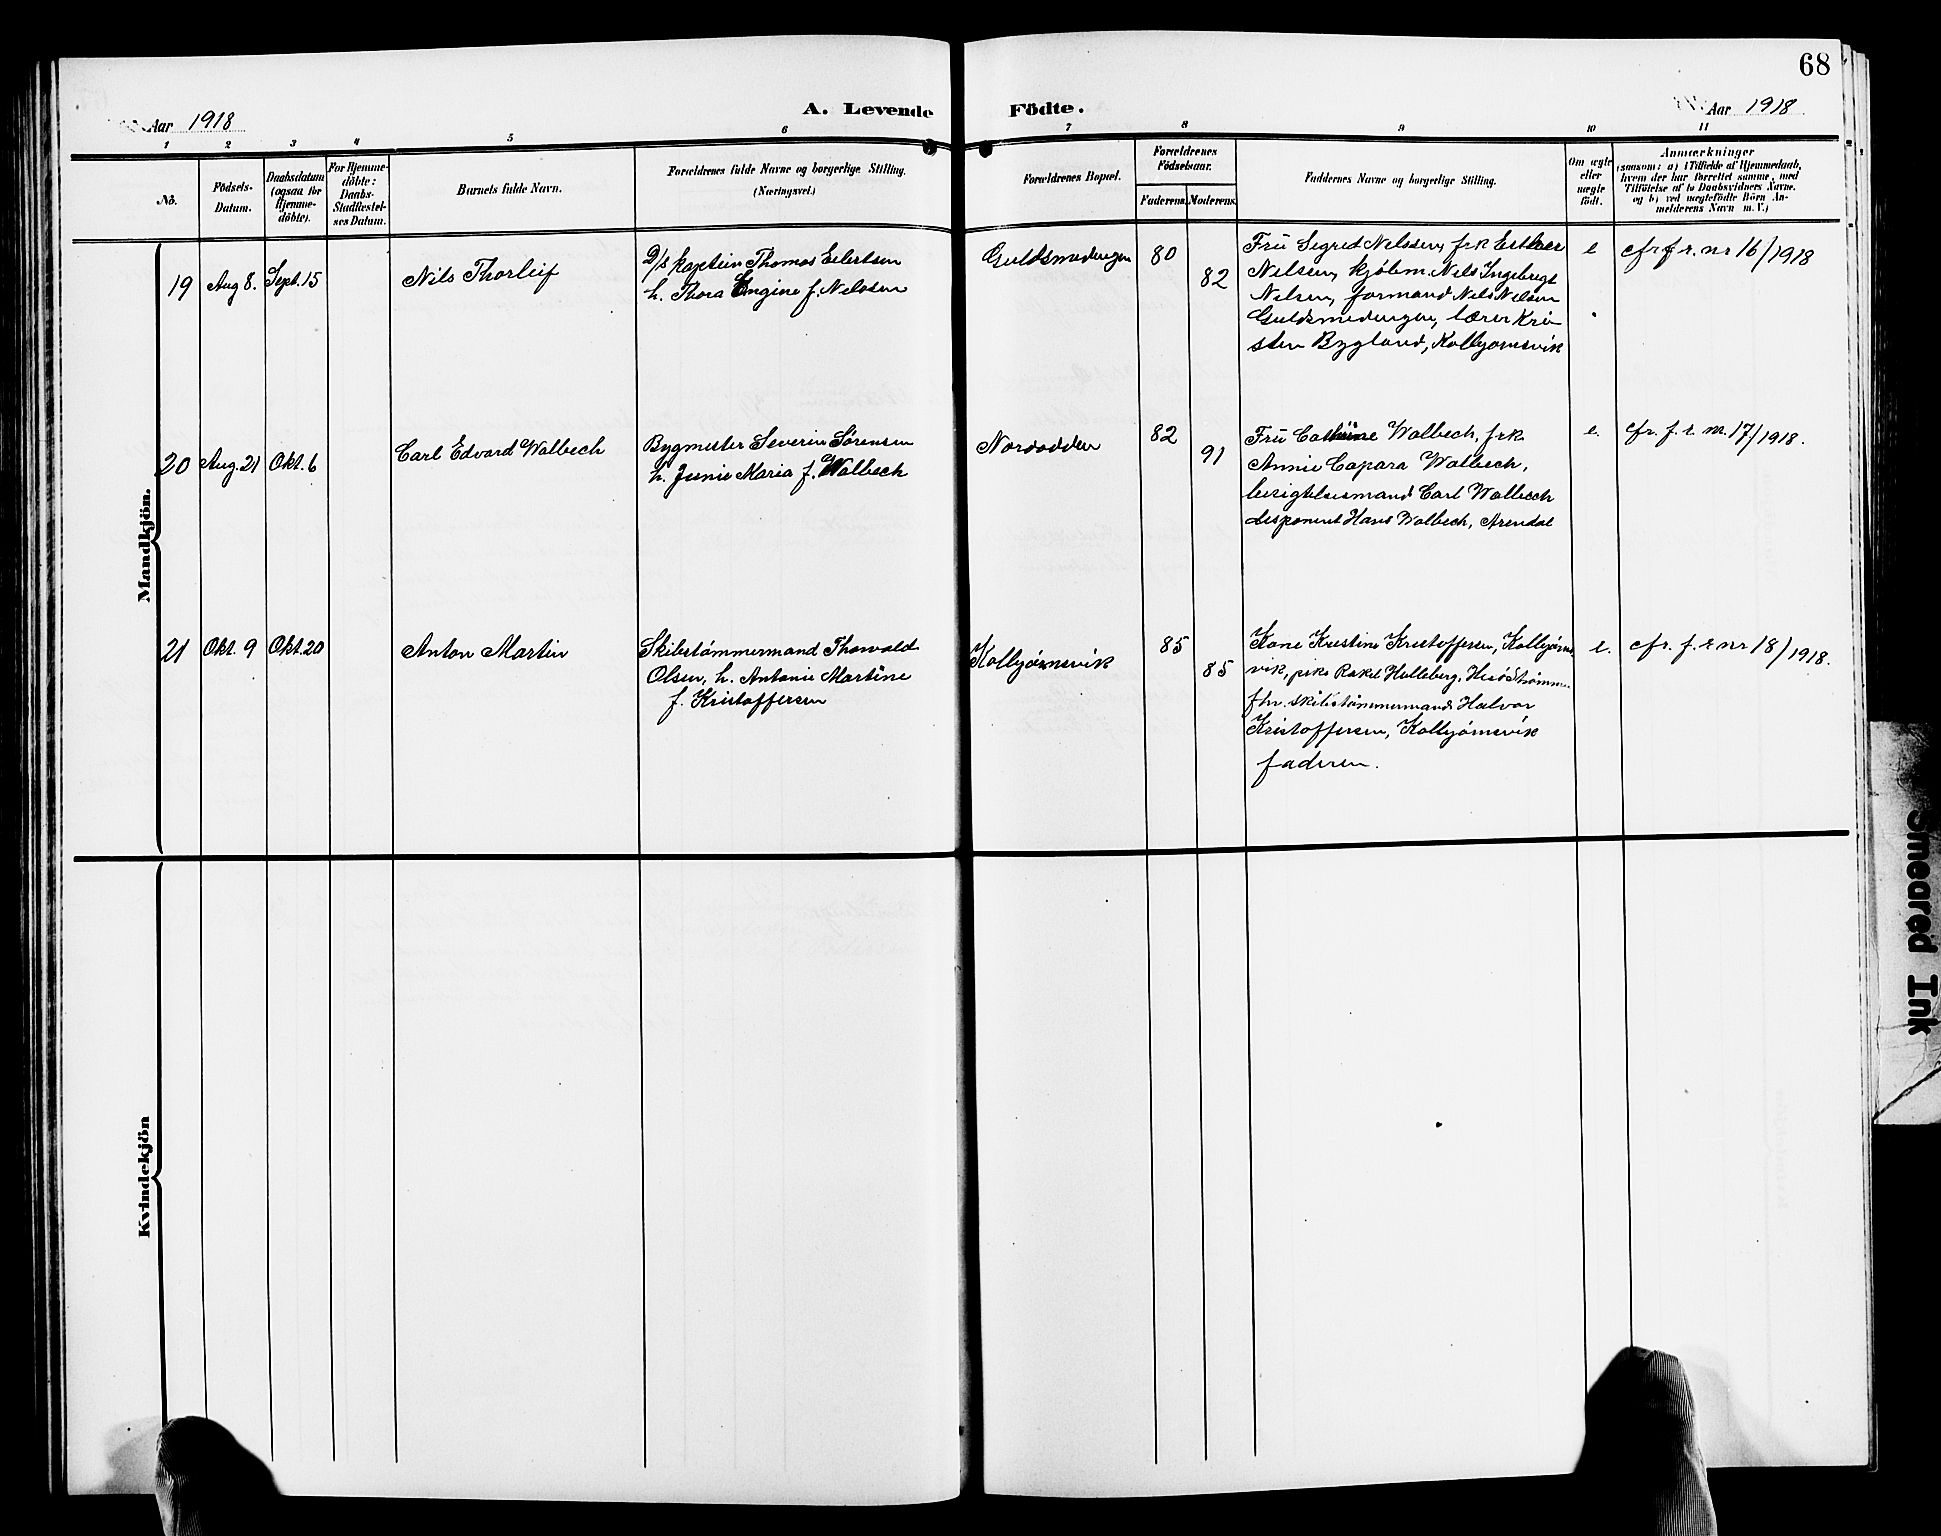 68
Aar 1918
A. Levende Födte.
Aar 1918
1 2 3 4 5 6 7 8 9 10 11
No.
Födsels-
Datum.
Daabsdatum
(ogsaa for
Hjemme-
döbte).
For Hjemme-
döbte:
Daabs-
Stadfæstel-
ses Datum.
Barnets fulde Navn.
Forældrenes fulde Navne og borgerlige Stilling.
(Næringsvei.)
Forældrenes Bopæl.
Forældrenes
Födselsaar.
Faderens.
Moderens.
Faddernes Navne og borgerlige Stilling.
Om ægte
eller
uægte
födt.
Anmærkninger
(saasom: a) i Tilfælde af Hjemmedaab,
hvem der har forrettet samme, med
Tilföielse af to Daabsvidners Navne.
og b) ved uægtefödte Börn An-
melderens Navn m. V.)
Mandkjön.
19
Aug 8.
Sept. 15
Nils Thorleif
D/s kaptein Thomas Eilertsen
h. Thora Engine f. Nelssen
Guldsmedengen
80
82
Fru Sigred Nelssen, frk Esther
Nelsen, kjøbm. Nils Ingebregt
Nelsen, formand Nils Nelsen
Guldsmedengen, lærer Kri-
sten Bygland, Kolbjørnsvik
e
cfr f. r. nr 16/1918
20
Aug. 21
Okt. 6
Carl Edvard Walbech
Bygmester Severin Sørensen
h. Junie Maria f. Walbech
Nordodden
82
91
Fru Cathrine Walbech, frk.
Annie Capara Walbech,
besigtelsesmand Carl Walbech
disponent Hans Walbech, Arendal
e.
cfr. f. r. nr. 17/1918.
21
Okt. 9
Okt. 20
Anton Martin
Skibstømmermand Thorvald
Olsen, h. Antonie Martine
f. Kristoffersen
Kolbjørnsvik
85
85
Kone Kristine Kristoffersen, Kolbjørns-
vik, pike Rakel Helleberg, Hisø
skibstømmermand Halvor
Kristoffersen, Kolbjørnsvik
faderen.
e.
cfr. f. r nr 18/1918.
Kvindekjön
Smeared Ink